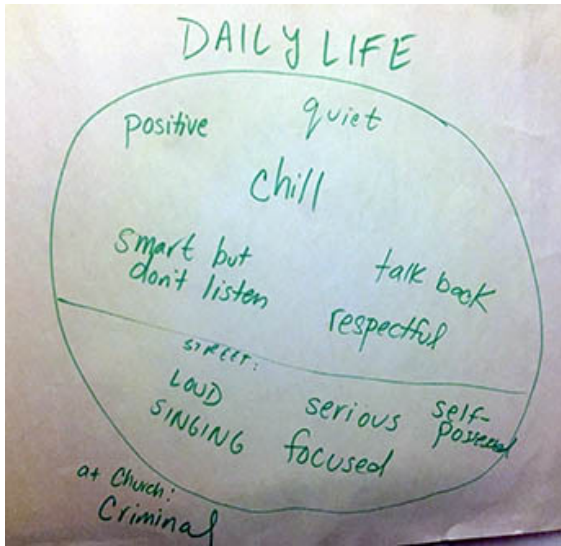 DAILY LIFE
positive quiet
chill
smart but
don't listen
talk back
respectful
STREET:
LOUD
SINGING
serious
focused
self-
possessed
at Church:
Criminal